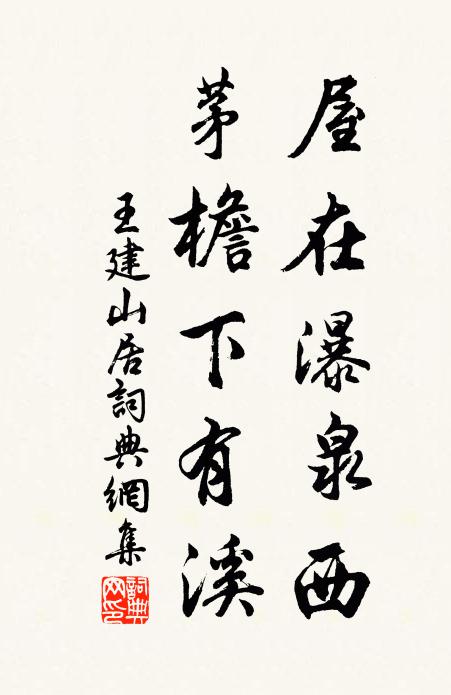 屋在瀑泉西
茅檐下有溪
王建山居詞典網集
詞典網印